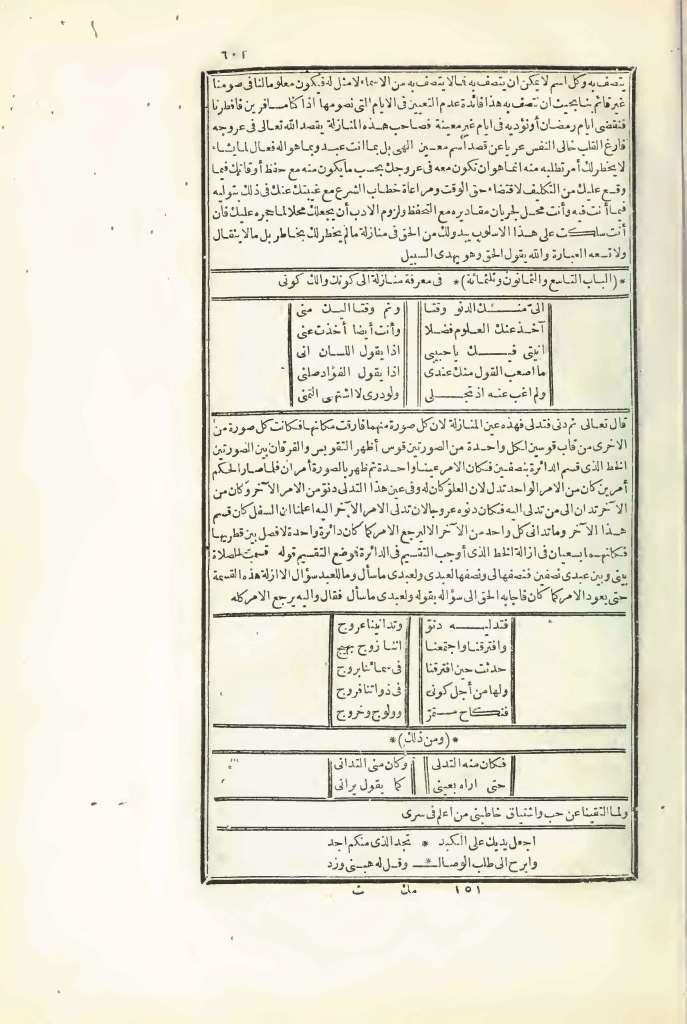 ٦٠٢
يتصف به وكل اسم لا يمكن ان يتصف به فمالا يتصف به من الاسماء لا مثل له فيكون معلوما لنا فى صومنا
غير قائم بنا بحيث ان نتصف به هذا فائدة عدم التعيين فى الايام التى نصومها اذا كنا مسافرين فافطرنا
فنقضى ايام رمضان أو نؤديه فى ايام غير معينة فصاحب هذه المنازلة يقصد الله تعالى فى عروجه
فارغ القلب خالى النفس عريا عن قصد اسم معين الهى بل بما انت عبد وبما هو اله فعال لما يشاء
لا يخطر لك أمر تطلبه منه انما هو ان تكون معه فى عروجك بحسب ما يكون منه مع حفظ أوقاتك فيما
وقع عليك من التكليف لاقتضاء حق الوقت ومراعاة خطاب الشرع مع غيبتك عنك فى ذلك بتوليه
فيما أنت فيه وأنت محل لجريان مقاديره مع التحفظ ولزوم الادب أن يجعلك محلا لما حجره عليك فان
أنت سلكت على هذا الاسلوب يبدو لك من الحق فى منازلة ما لم يخطر لك بخاطر بل مالا ينقال
ولا تسعه العبارة والله يقول الحق وهو يهدى السبيل
*(الباب التاسع والثمانون وثلثمائة)* فى معرفة منازلة الى كونك والك كونى
الىّ منك الدنو وقتا وثم وقتا اليك منى
آخذ عنك العلوم فضلا وأنت أيضا أخذت عنى
انيتى فيك يا حبيبى اذا يقول اللسان انى
ما اصعب القول منك عندى اذا يقول الفؤاد صلنى
ولم اغب عنه اذ تجلى ولو درى لاشتهى التمنى
قال تعالى ثم دنى فتدلى فهذه عين المنازلة لان كل صورة منهما فارقت مكانها فكانت كل صورة من
الاخرى من قاب قوسين لكل واحدة من الصورتين قوس أظهر التقويس والفرقان بين الصورتين
الخط الذى قسم الدائرة بنصفين فكان الامر عينا واحدة ثم ظهر بالصورة أمران فلما صار الحكم
أمرين كان من الامر الواحد تدل لان العلو كان له وفى عين هذا التدلى دنو من الامر الآخر وكان من
الآخر تدان الى من تدلى اليه فكان دنوه عروجا لان تدلى الامر الآخر اليه اعلمنا ان السفل كان قسم
هذا الآخر وما تدانى كل واحد من الآخر الا ليرجع الامر كما كان دائرة واحدة لا فصل بين قطريها
فكانهما يسعيان فى ازالة الخط الذى أوجب التقسيم فى الدائرة فوضع التقسيم قوله قسمت الصلاة
بينى وبين عبدى نصفين فنصفها لى ونصفها لعبدى ولعبدى ما سأل وما للعبد سؤال الا ازالة هذه القسمة
حتى يعود الامر كما كان فاجابه الحق الى سؤاله بقوله ولعبدى ما سأل فقال واليه يرجع الامر كله
فتدليه دنوّ وتدانينا عروج
وافترقنا واجتمعنا اننا زوج بهيج
حدثت حين افترقنا فى سمائنا بروج
ولها من أجل كونى فى ذواتنا فروج
فنكاح مستمرّ وولوج وخروج
*(ومن ذلك)*
فكان منه التدلى وكان منى التدانى
حتى اراه بعينى كما يقول يرانى
ولما التقينا عن حب واشتياق خاطبنى من اعلم فى سرى
اجعل يديك على الكبد * تجد الذى منكم اجد
وابرح الى طلب الوصال * وقل له هبنى وزد
١٥١ مك ث